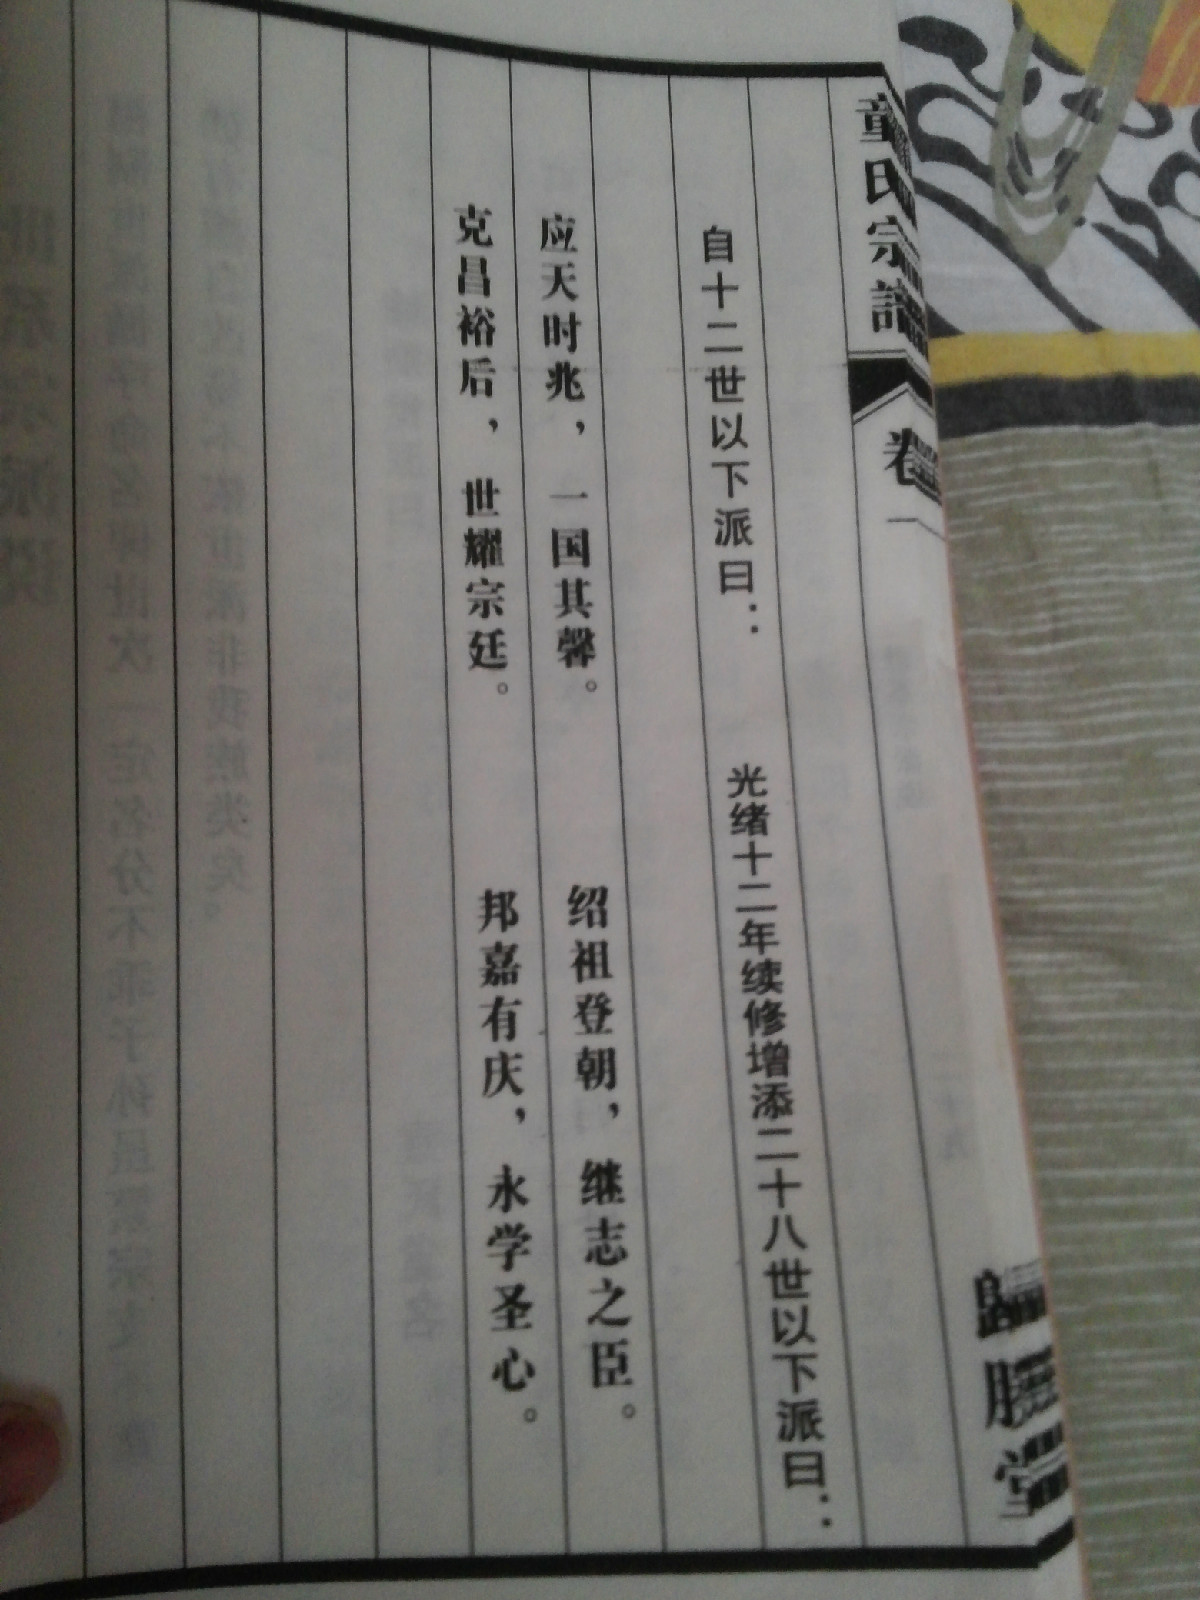 童氏宗譜
卷一
自十二世以下派曰：
光绪十二年续修增添二十八世以下派曰：
应天时兆，一国其馨。
绍祖登朝，继志之臣。
克昌裕后，世耀宗廷。
邦嘉有庆，永学圣心。